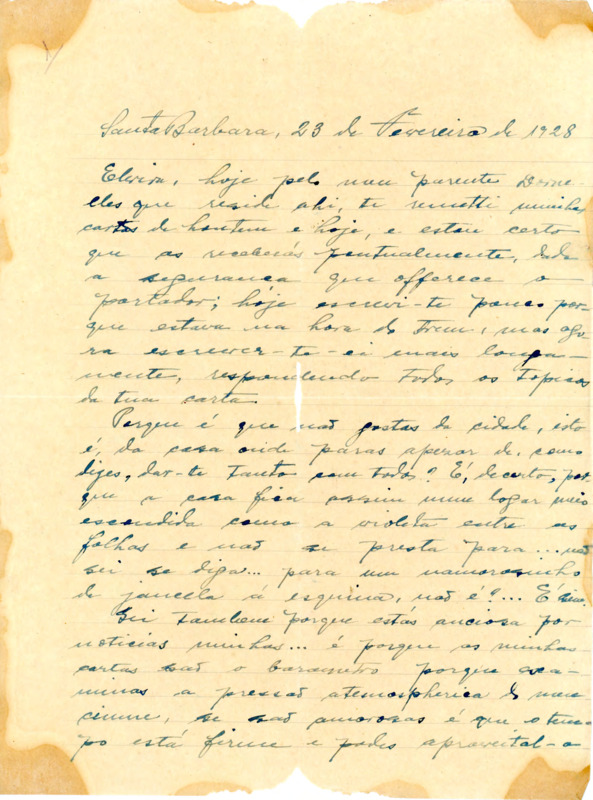 Santa Barbara, 23 de Fevereiro de 1928
Elvira, hoje pelo meu parente Dorne-
lles que reside ahi, te remetti minhas
cartas de hontem e hoje, e estou certo
que as receberás pontualmente, dada
a segurança que offerece o
portador; hoje escrevi-te pouco por-
que estava na hora do trem, mas ago-
ra escrever-te-ei mais longa-
mente, respondendo todos os topicos
da tua carta.
Porque é que não gostas da cidade, isto
é, da casa onde paras apezar de, como
dizes, dar-te tanto com todos? É, decerto, por-
que a casa fica assim num logar meio
escondida como a violeta entre as
folhas e não se presta para... não
sei se diga... para um namorosinho
de janella á esquina, não é?... É sim.
Sei tambem porque estás anciosa por
noticias minhas... é porque as minhas
cartas são o barometro porque exa-
minas a pressão atemospherica do meu
ciume, se são amorosas é que o tem-
po está firme e podes aproveital-o